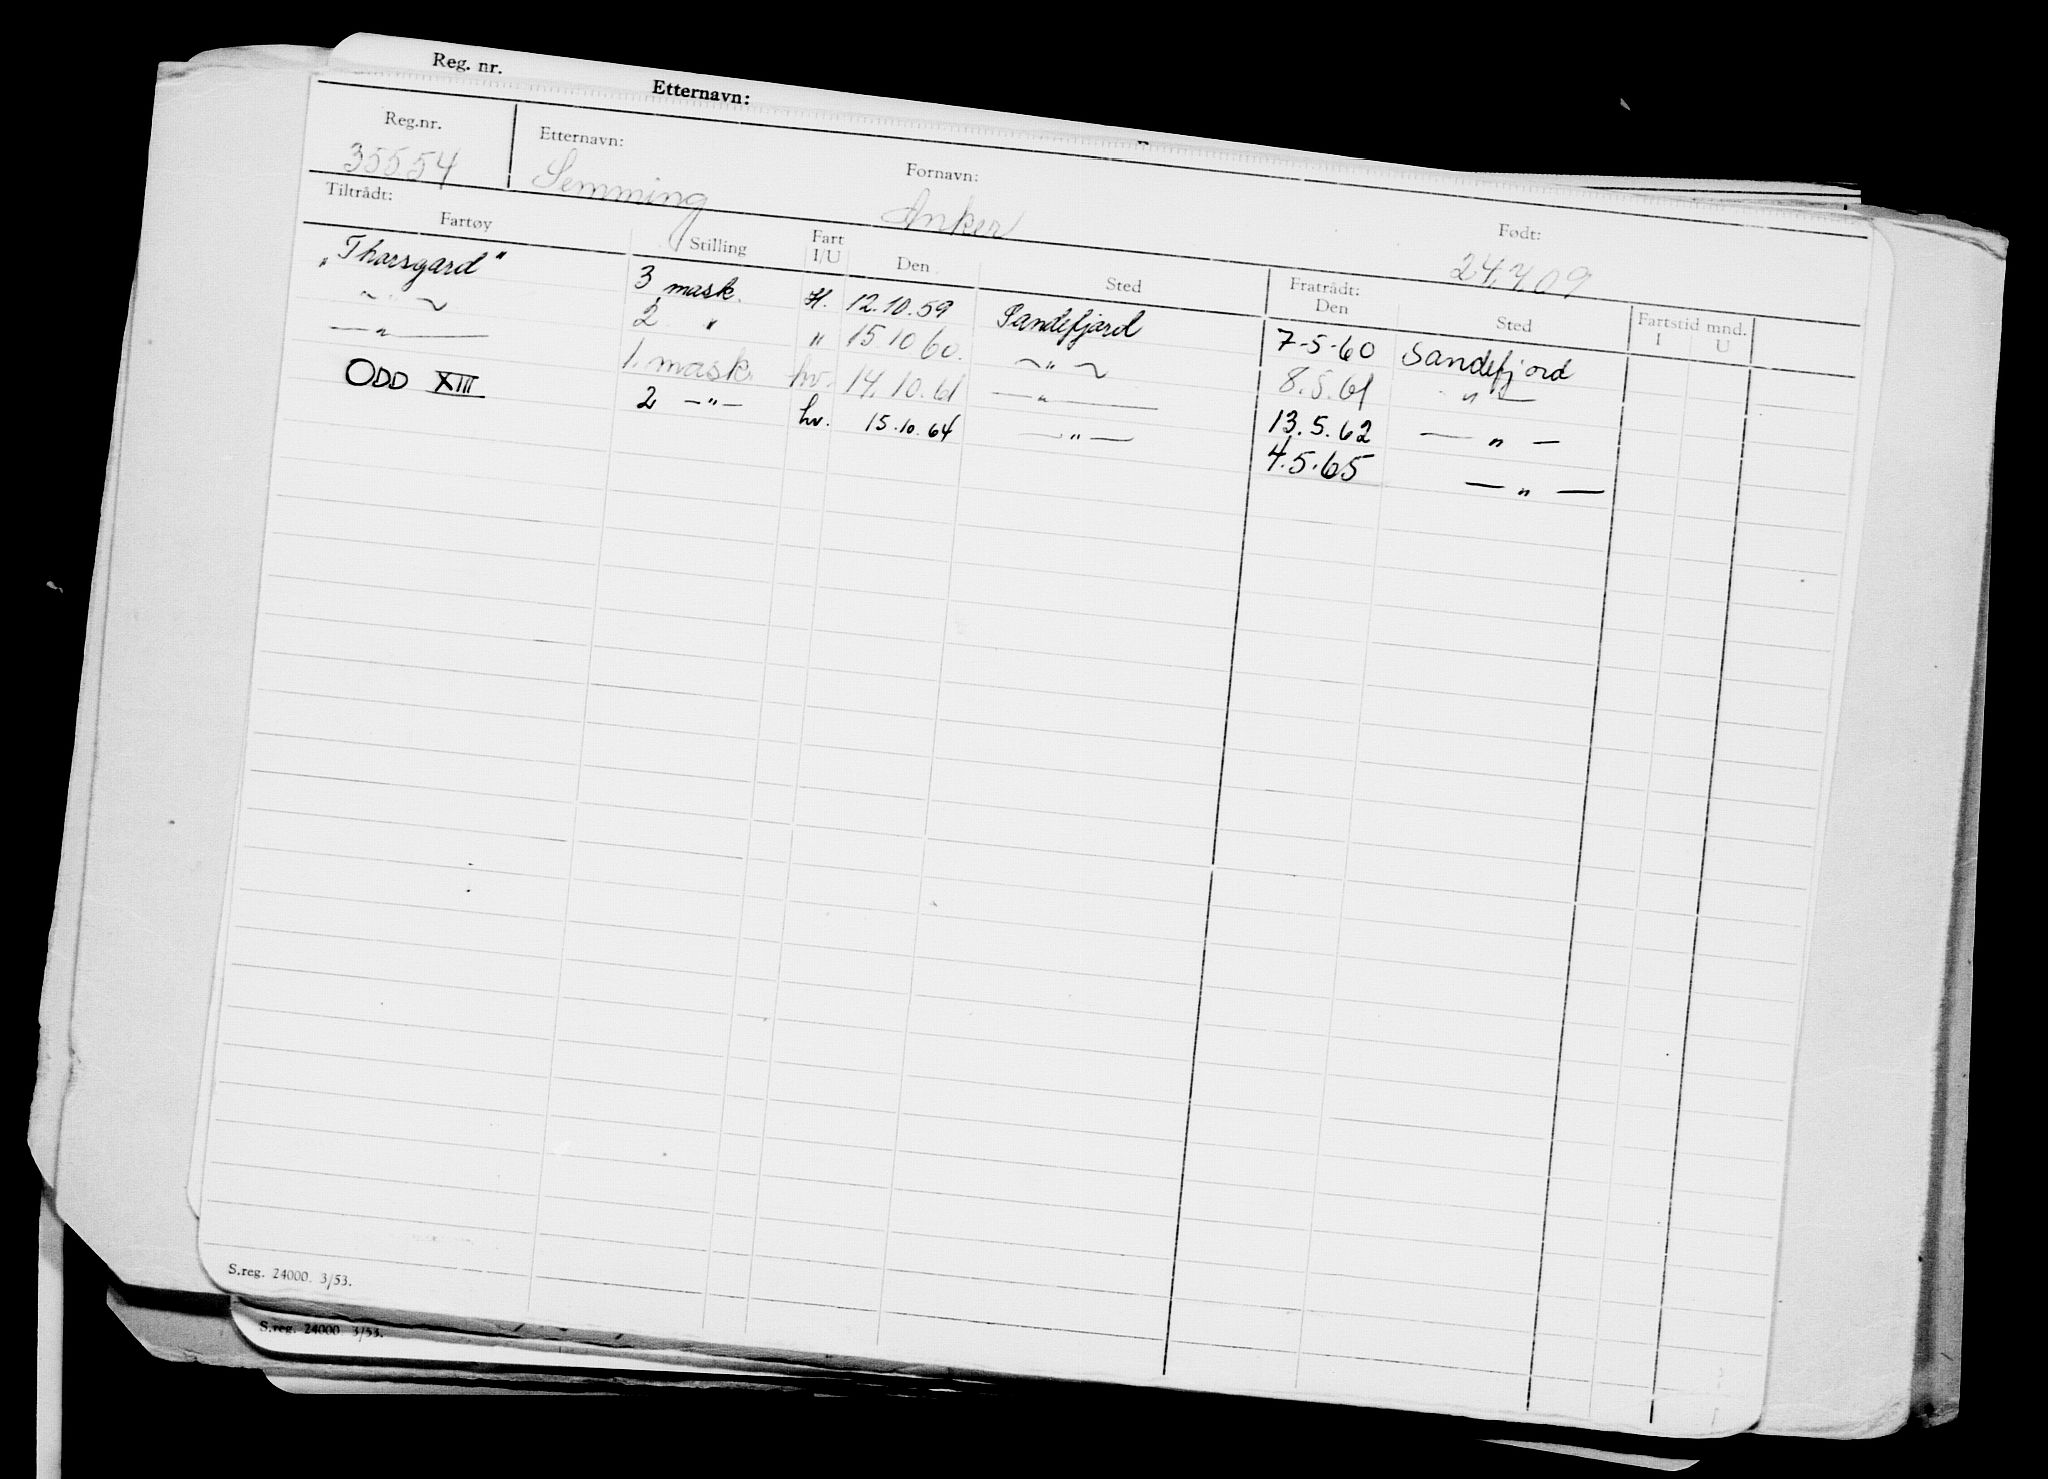 Reg. nr. Etternavn:
Reg.nr. Etternavn: Fornavn: Født:
35554 Semming Anker 24.7.09
Tiltrådt: Fratrådt:
Fartøy Stilling Fart I/U Den Sted Den Sted Fartstid mnd. I U
"Thorsgard" 3 mask. H. 12.10.59 Sandefjord 7-5-60 Sandefjord
~ " ~ 2 " " 15.10 60. ~ " ~ 8.5.61 " —
— " — 1. mask. hv. 14.10.61 — " — 13.5.62 — " —
ODD XIII 2 — " — hv. 15.10.64 — " — 4.5.65 — " —
S.reg. 24000. 3/53.
S.reg. 24000 3/53.